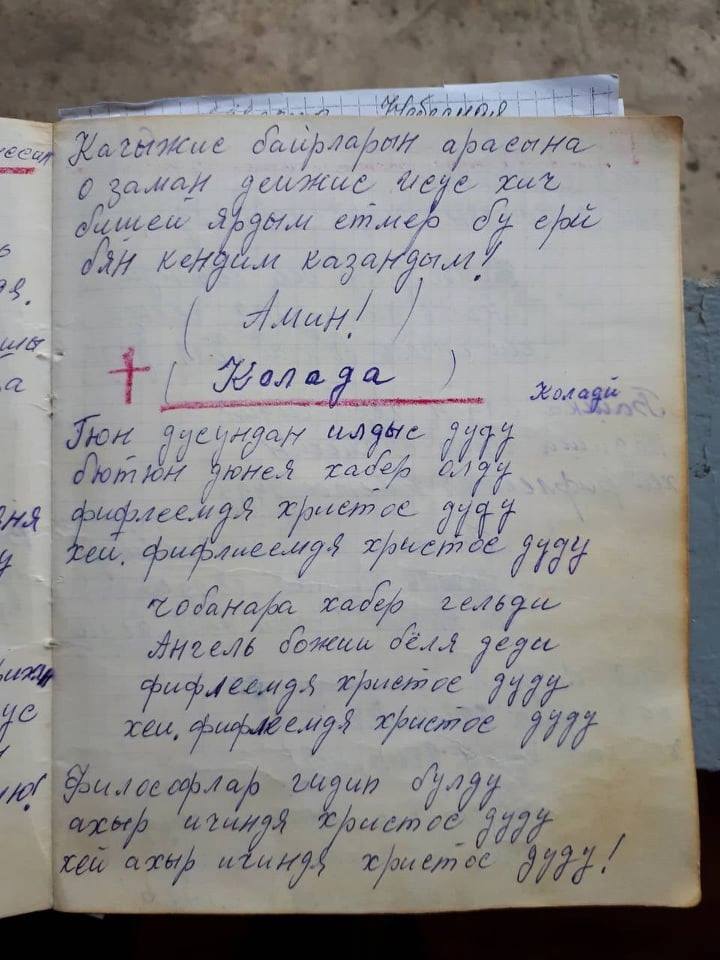 Набеаная
Качыжис байрларын арасына
о заман дейжис исус хич
бишей ярдым етмер бу ерй
бян кендим казандым!
( Амин! )
+ ( Колада ) холадй
Гюн дусундан илдыс дуду
бютюн дюнея хабер олду
фифлеемдя христос дуду
хеи. фифлиеемдя христос дуду
чобанара хабер гельди
Ангель божии бёля деди
фифлеемдя христос дуду
хеи. фифлеемдя христос дуду
Философлар гидип булду
ахыр ичиндя христос дуду
хей ахыр ичиндя христос дуду!